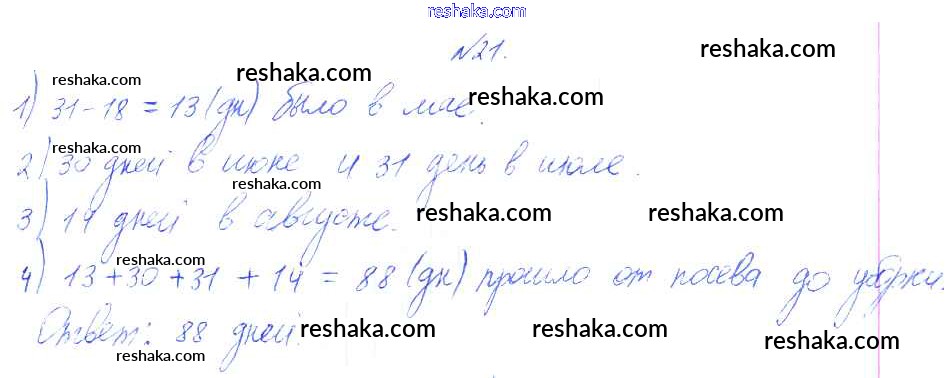 reshaka.com
№21.
reshaka.com
reshaka.com
reshaka.com
reshaka.com
1) 31 - 18 = 13 (дн) было в мае.
reshaka.com
2) 30 дней в июне и 31 день в июле.
reshaka.com
3) 14 дней в августе.
reshaka.com
reshaka.com
reshaka.com
4) 13 + 30 + 31 + 14 = 88 (дн) прошло от посева до уборки.
Ответ: 88 дней.
reshaka.com
reshaka.com
reshaka.com
reshaka.com